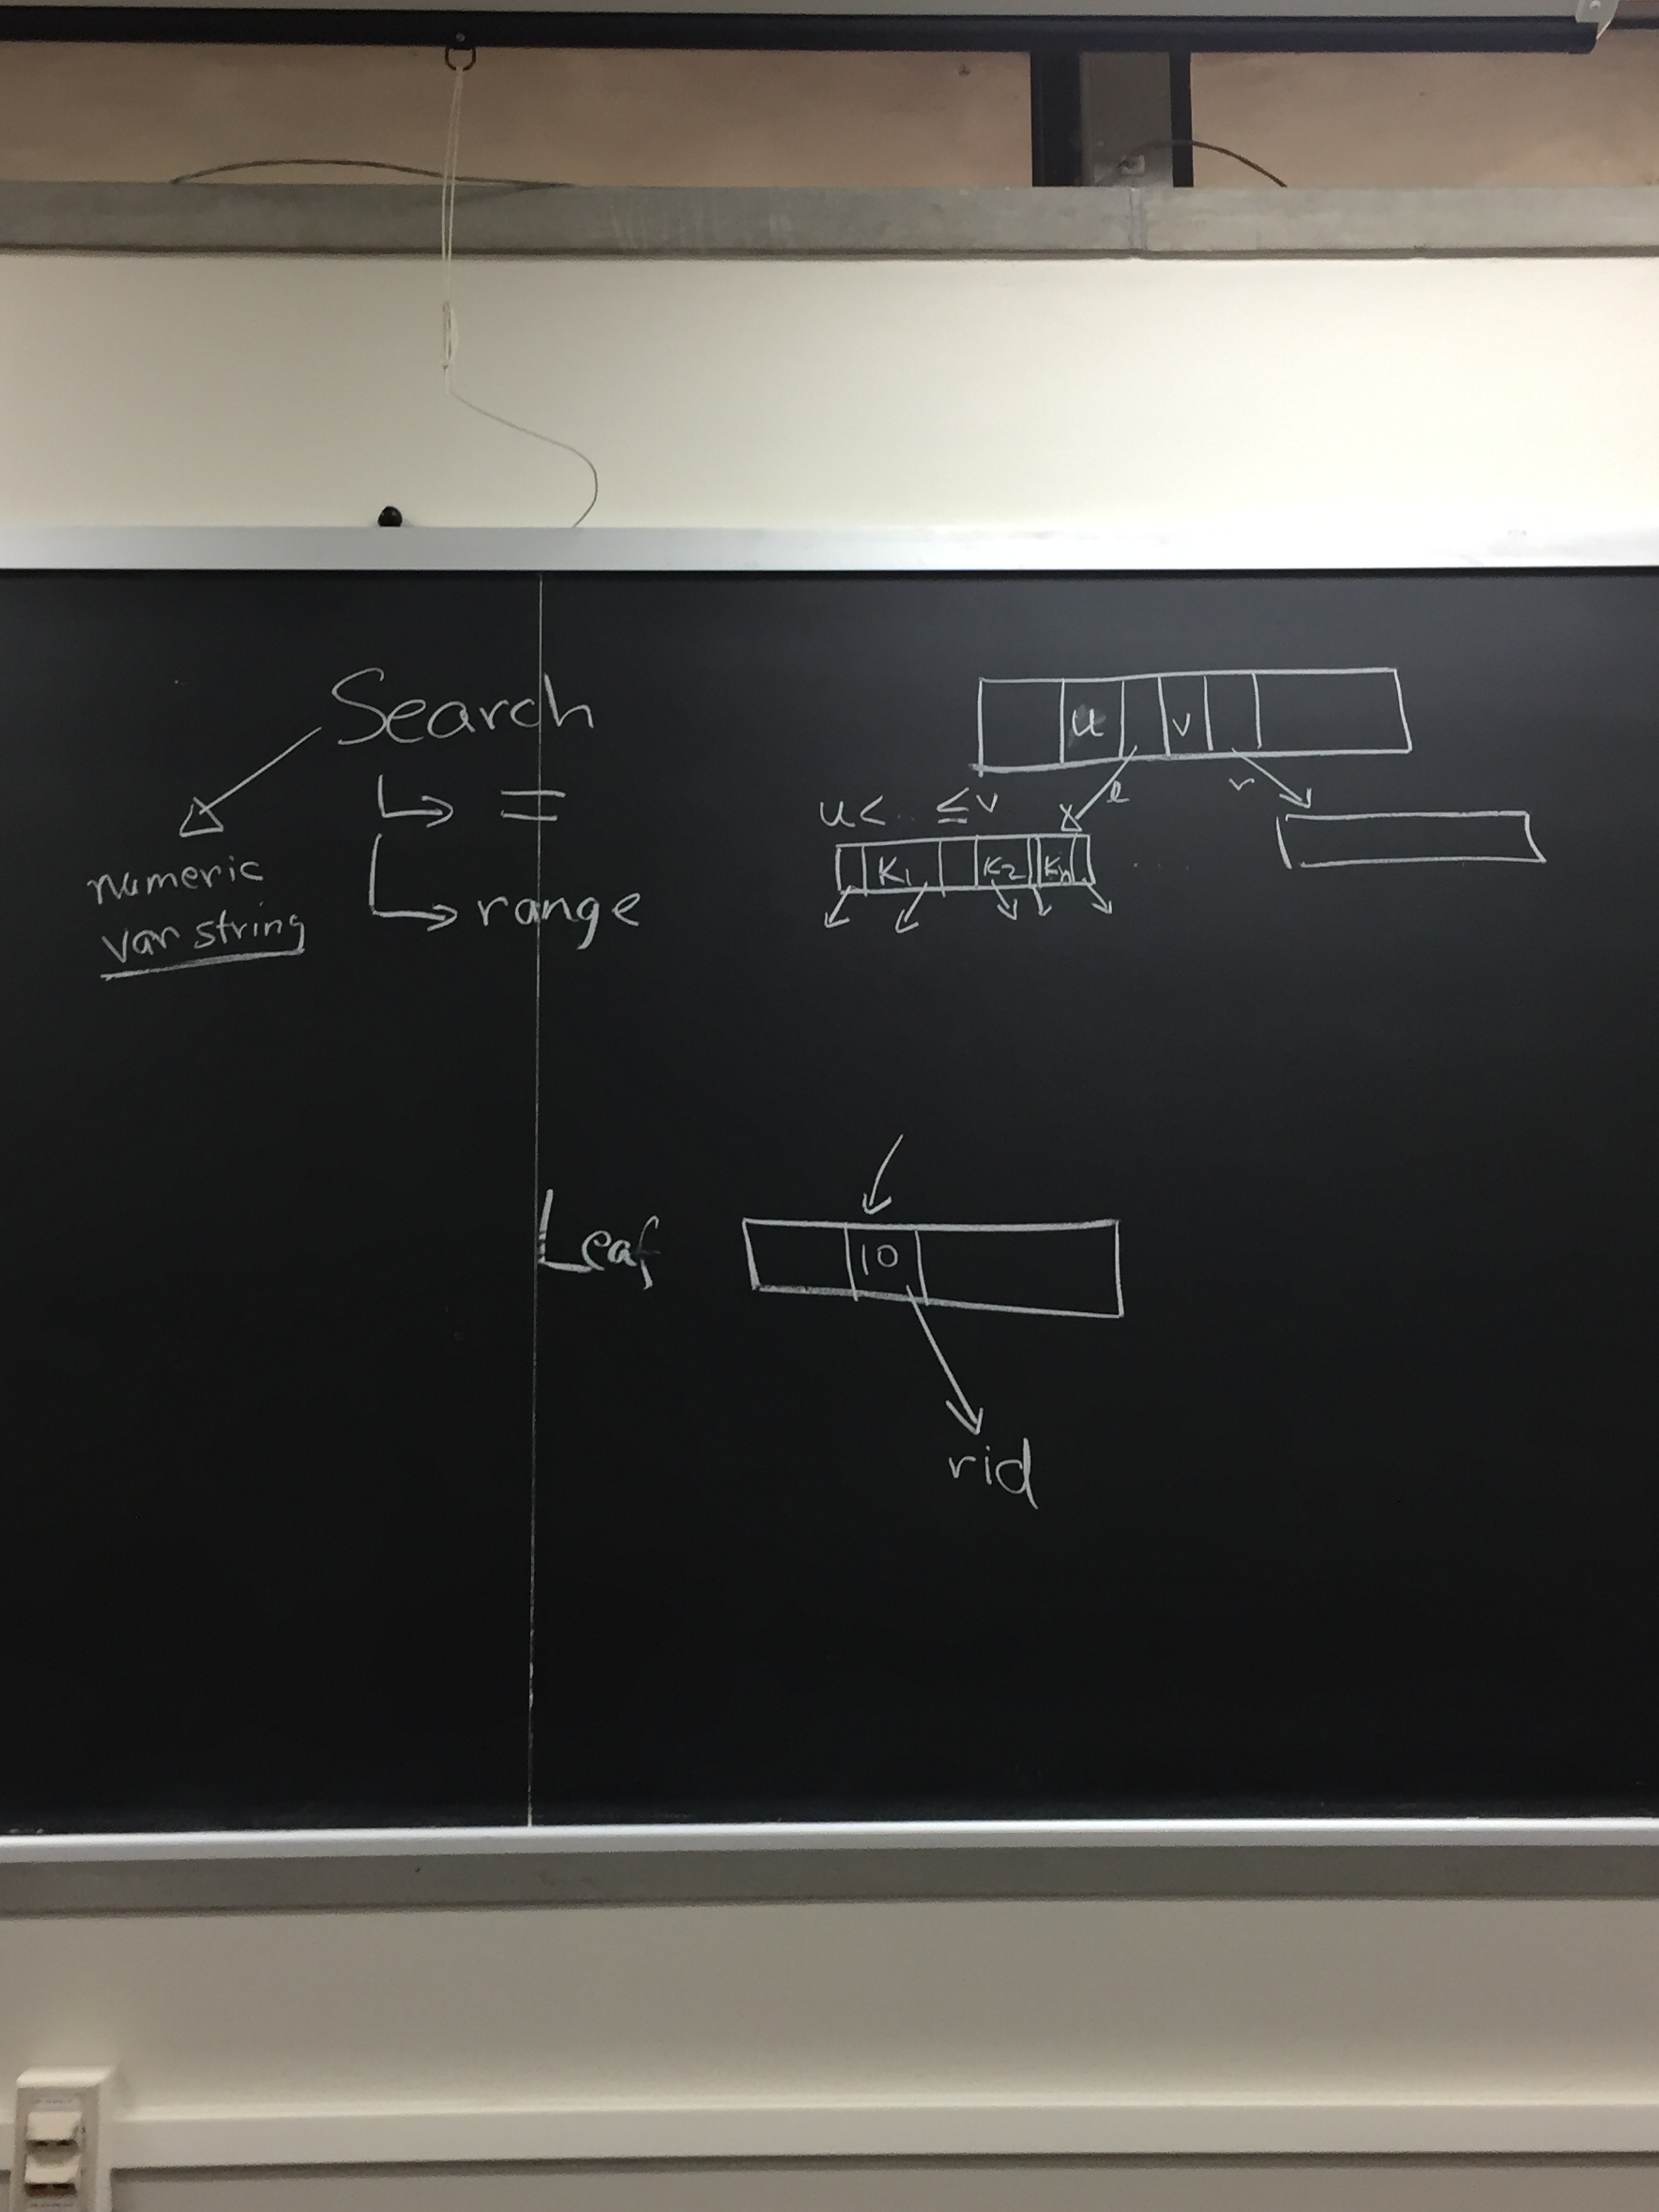 Search
=
range
numeric
var string
u v
l r
u< .. ≤ v
K1 K2 Kn
Leaf
10
rid